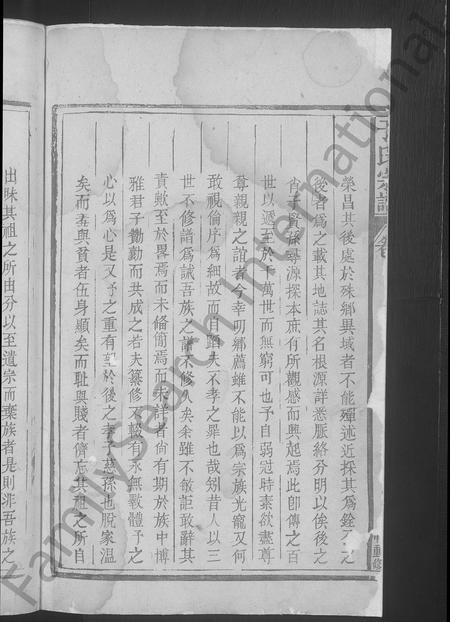 榮昌其後處於殊鄉異域者不能殫述近採其爲銓
後者爲之載其地誌其名根源詳悉脈絡分明以俟後之
孫尋源探本庶有所觀感而興起焉此卽傳之百
世以遞至於千萬世而無窮可也予自弱冠時素欲盡尊
尊親親之誼者今幸叨鄉薦雖不能以爲宗族光寵又何
敢視倫序爲細故而自蹈夫不孝之罪也哉矧昔人以三
世不修譜爲誡吾族之譜不修久矣余雖不敏詎敢辭其
責歟至於畧焉而未備簡焉而未詳者尚有期於族中博
雅君子勷勷而共成之若夫纂修不輟有永無斁體予之
心以爲心是又予之重有望於後之孝子慈孫也脫家溫
矣而羞與貧者伍身顯矣而耻與賤者儕忘其祖之所自
出昧其祖之所由分以至遺宗而棄族者是則非吾族之
氏宗譜
卷
重修
FamilySearch International